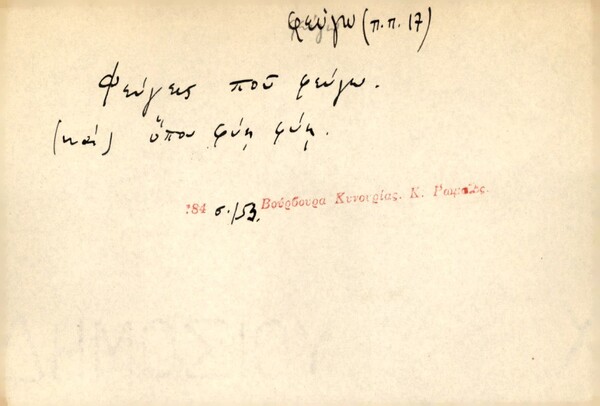 φεύγω (π.π. 17)
Φεύγεις ποῦ φεύγω.
(καὶ) ὅπου φύῃ φύῃ.
284 σ./53. Βούρβουρα Κυνουρίας. Κ. Ρωμαῖος.